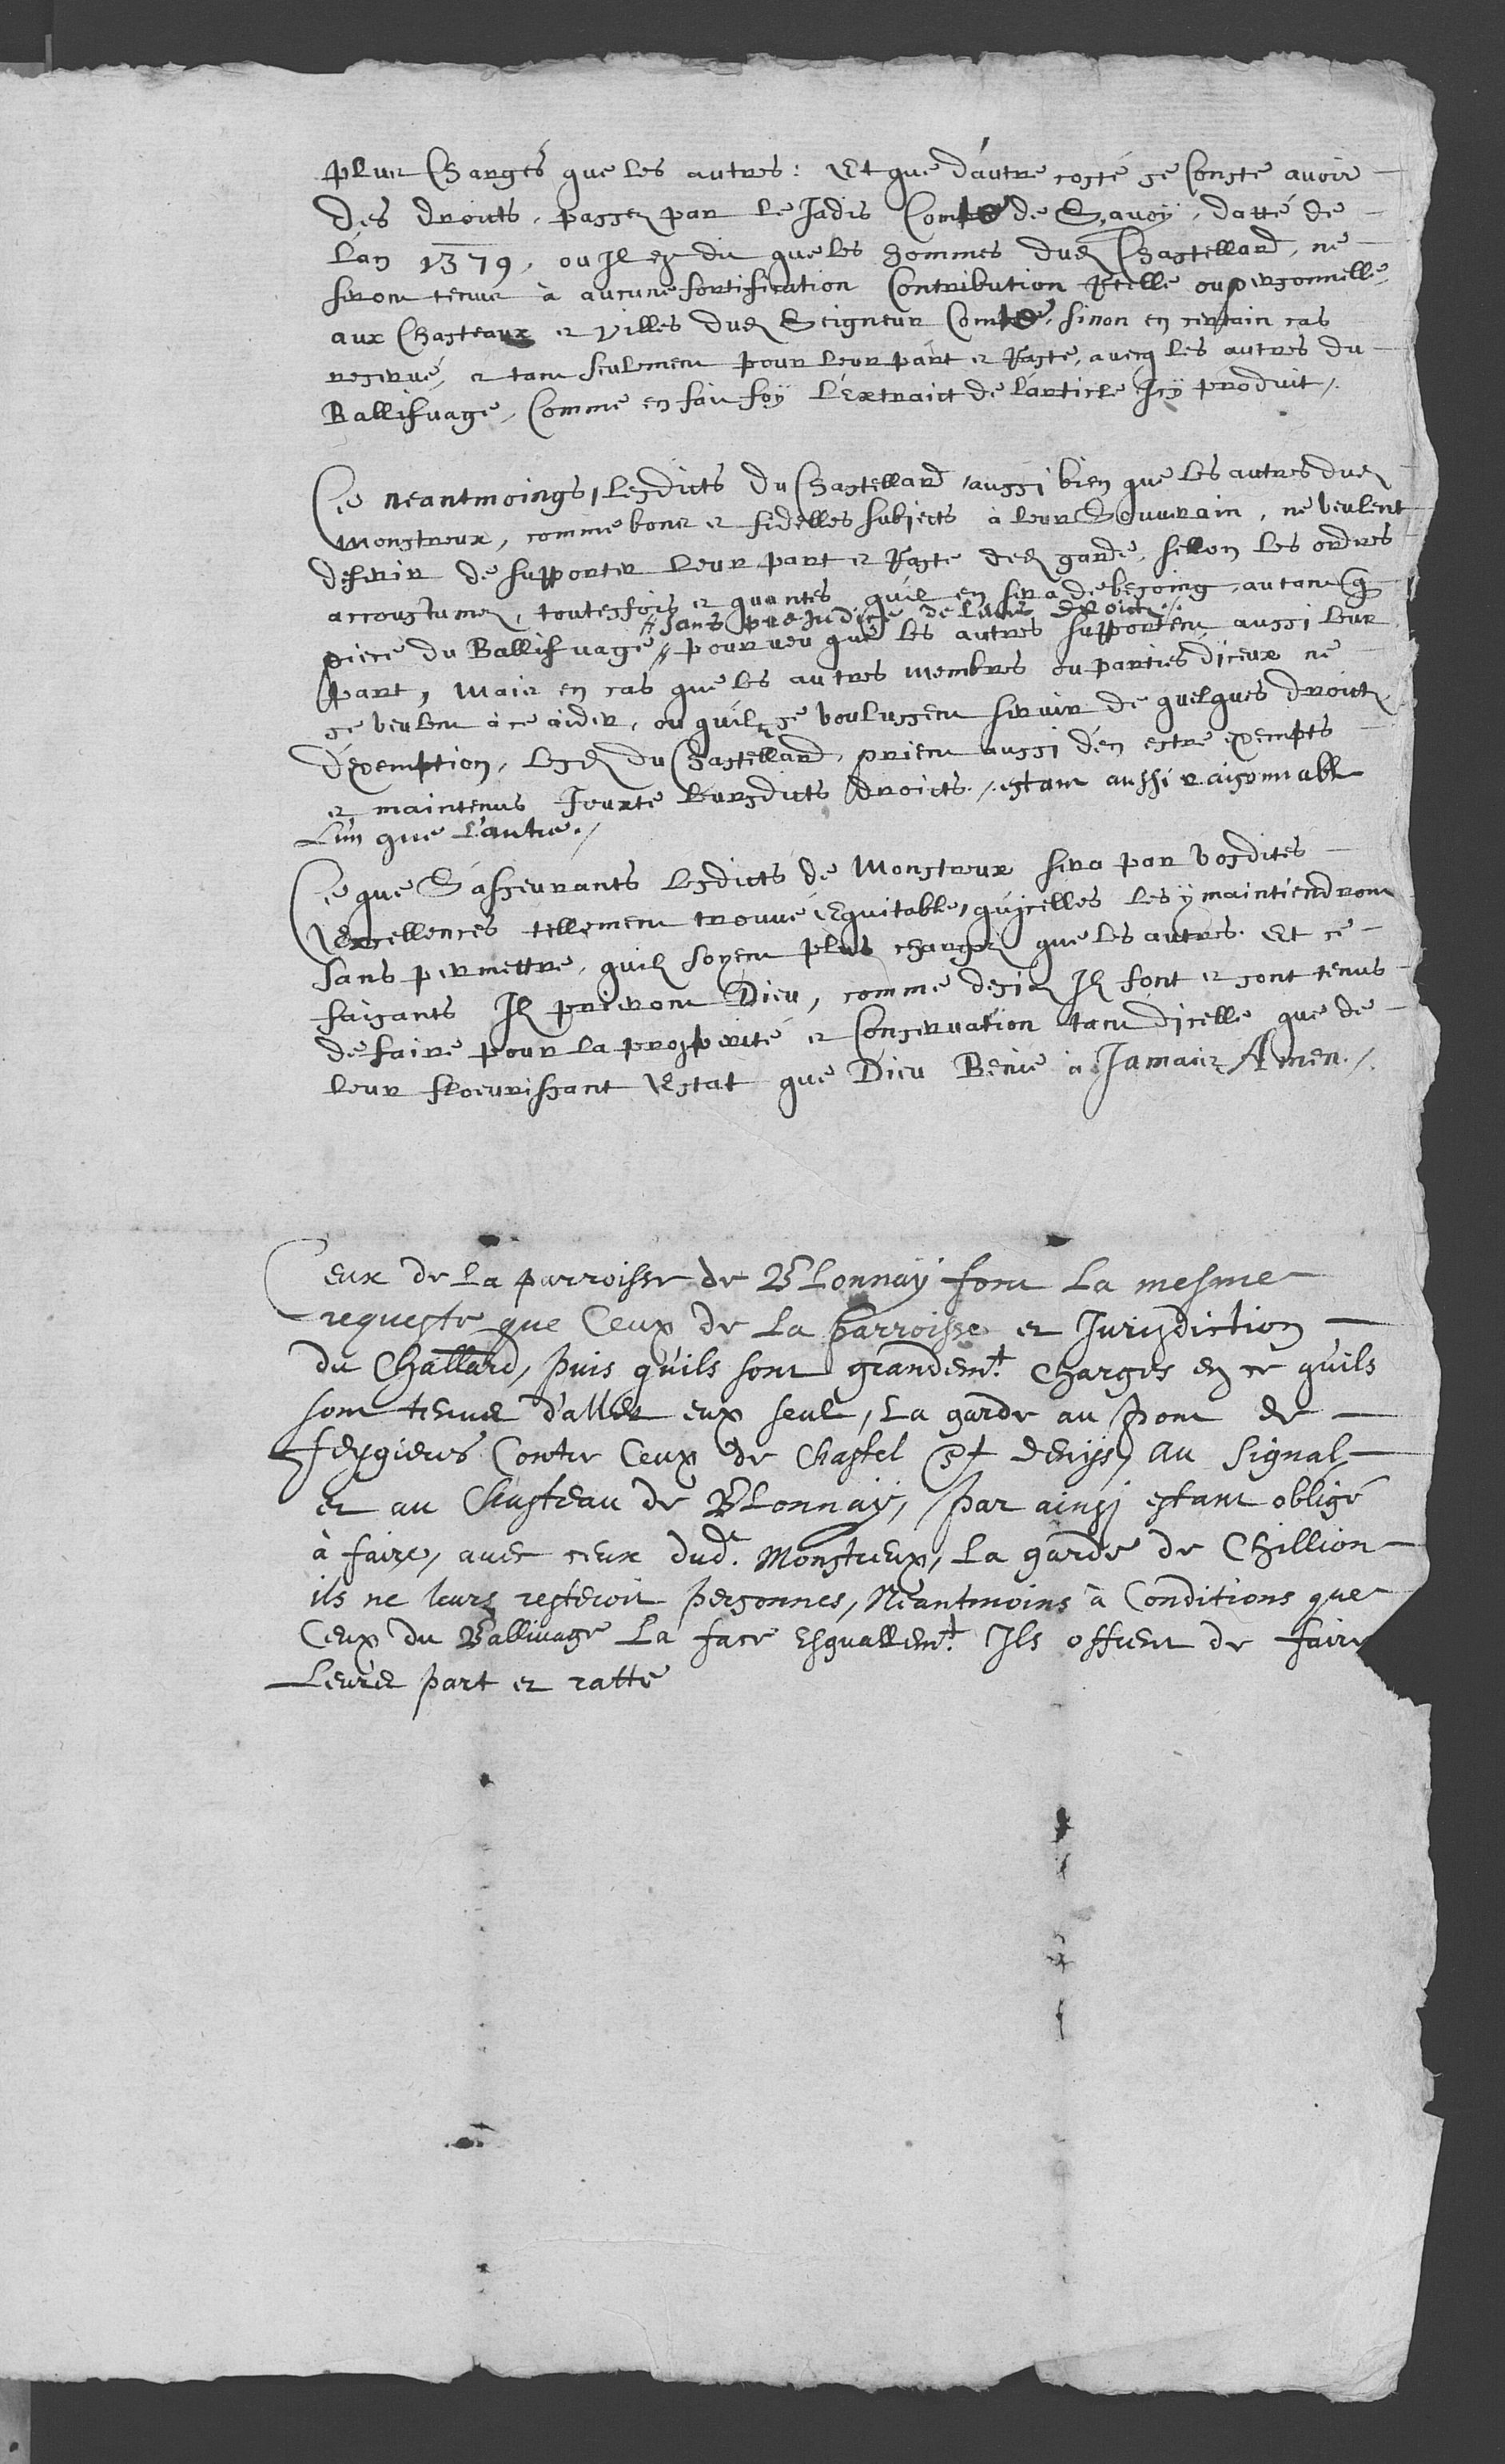 plus Chargés que les autres: Et que d'autre costé se Conste avoir
des droits, passez par le Jadis Comte de Savoÿ, datté de
l'an 1379, ou Il est dit que les hommes dud Chastellard, ne
seront tenus à aucune fortification Contribution Réelle ou personnelle
aux Chasteaux et villes dud Seigneur Comte, sinon en certain cas
reservé, et tant seulement pour leur part et Raste, avecq les autres du
Ballifvage, Comme en fait foÿ l'Extraict de l'article Icÿ produit /.
Ce neantmoings, lesdicts du Chastellard, aussi bien que les autres dud
Monstreux, comme bons et fidelles subjects à leur Souverain, ne veulent
de supporter leur part et Raste de garde, sellon les ordres
accoustumez, toutesfois et quantes qu'il en sera de besoing, autant
# sans prejudice de leurs droicts /.
piece du Ballifvage # pourveu que les autres supportent aussi leur
part, Mais en cas que les autres membres ou parties d'iceux ne
se veulent à ce aider, ou qu'ilz se voulussent servir de quelques droicts
d'exemption, lesd du Chastellard, prient aussi d'en estre exempts
et maintenus Jouxte leursdicts droicts /. estant aussi raisonnable
l'un que l'autre /.
Ce que S'asseurants lesdicts de Monstreux sera par vosdites
Excellences tellement trouvé Equitable, qu'icelles les ÿ maintiendront
sans permettre, qu'ilz soyent plus chargez que les autres. Et ce
faisants Ilz prieront Dieu, comme desia Ilz font et sont tenus
de faire pour la prosperité et Conservation tant d'icelle que de
leur floeurissant Estat que Dieu Benie à Jamais Amen /.
Ceux de la parroisse de Blonnay font la mesme
requeste que Ceux de la parroisse et Jurisdiction
du Chattlard, puis qu'ils sont grandemt. Charges en ce qu'ils
sont tenus d'aller eux seul, la garde au pont de
feygieres Contre Ceux de Chastel St denijs, au Signal,
et au Chasteau de Blonnay, par ainsi estant obligé
à faire, avec ceux dud. Monstreux, la garde de Chillion
ils ne leurs resteroit personnes, Neantmoins à Conditions que
Ceux du Ballivage la face Esquallemt. Ils offrent de faire
Leurs part et ratte